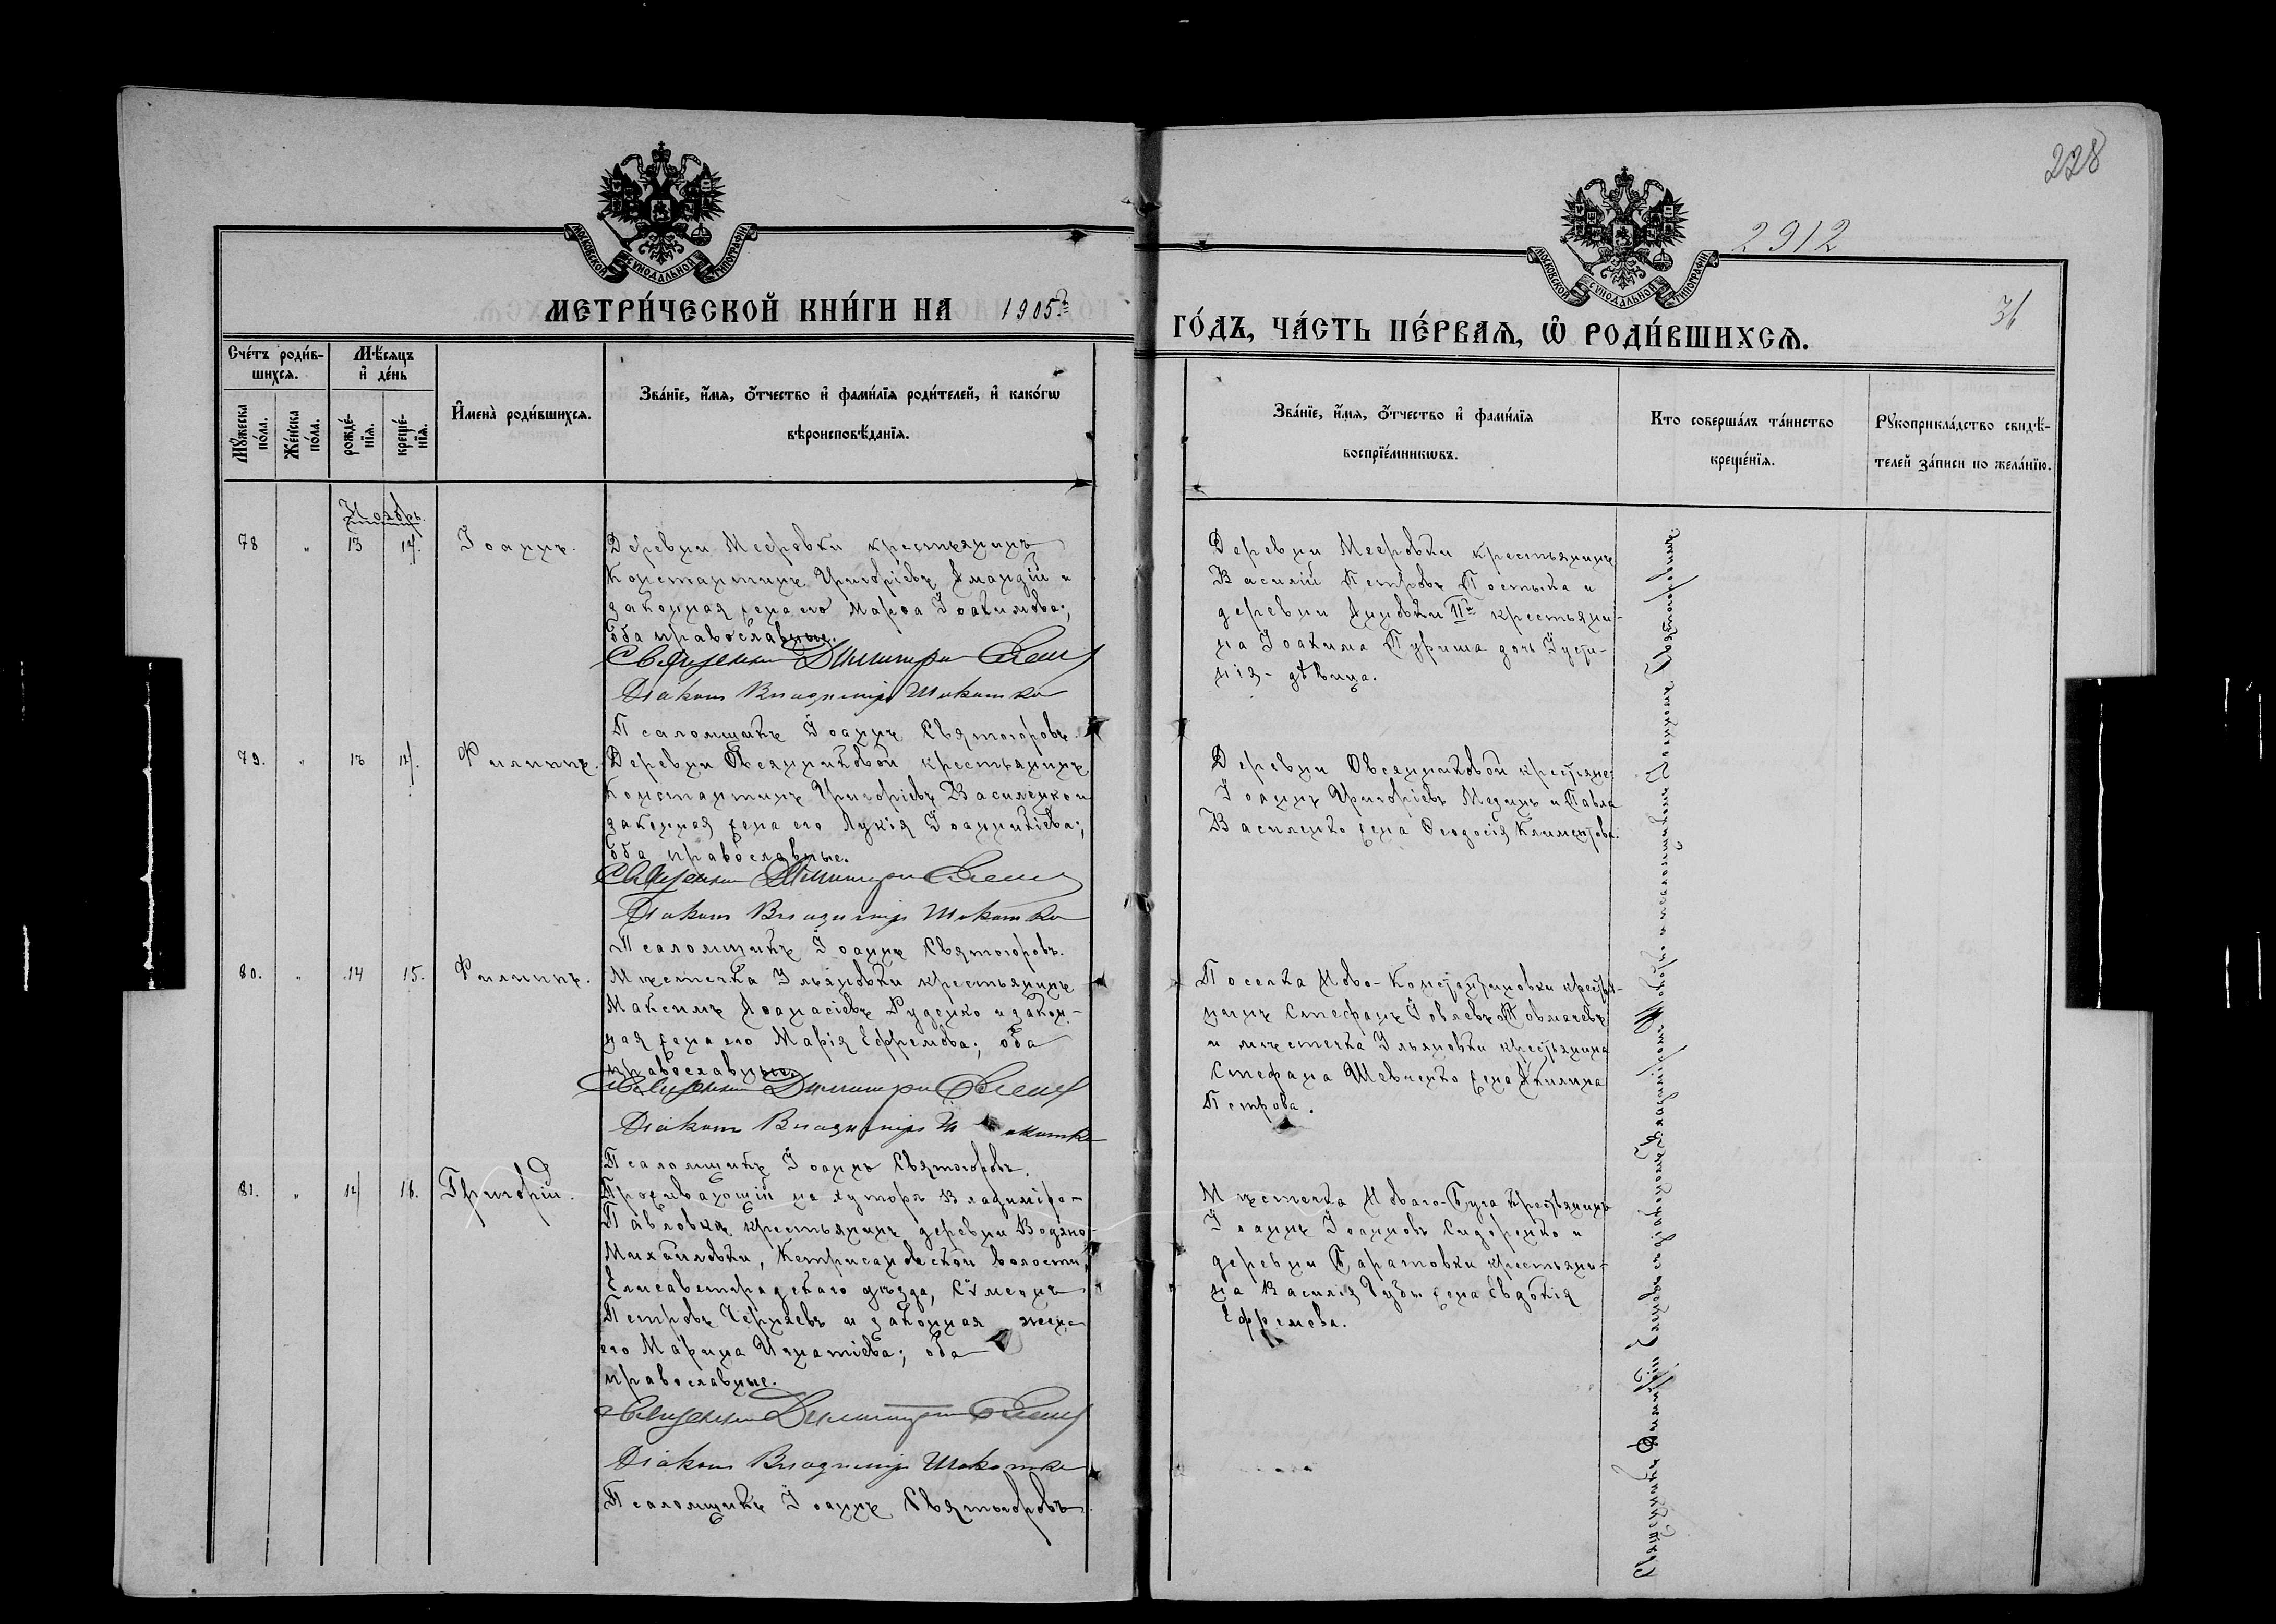 228
2912
36
МОСКОВСКОЙ СѴНОДАЛЬНОЙ ТИПОГРАФІИ
МОСКОВСКОЙ СѴНОДАЛЬНОЙ ТИПОГРАФІИ
МЕТРИ́ЧЕСКОЙ КНИ́ГИ НА 1905 г.
ГО́ДЪ, ЧА́СТЬ ПЕ́РВАѦ, Ѡ҆ РОДИ́ВШИХСѦ.
Сче́тъ роди́в-
шихсѧ.
Мѣ́сѧцъ
и҆ де́нь
Мꙋ́жеска по́ла.
Же́нска по́ла.
рожде́-
нїѧ.
креще́-
нїѧ.
И҆мена̀ роди́вшихсѧ.
Зва́нїе, и҆́мѧ, ѻ҆́тчество и҆ фами́лїѧ роди́телей, и҆ како́гѡ
вѣроисповѣ́данїѧ.
Зва́нїе, и҆́мѧ, ѻ҆́тчество и҆ фами́лїѧ
воспрїе́мникѡвъ.
Кто соверша́лъ та́инство
креще́нїѧ.
Рꙋкоприкла́дство свидѣ́-
телей за́писи по жела́нїю.
Ноябрь.
78 " 13 14. Іоаннъ.
Деревни Мееровки крестьянинъ
Константинъ Григоріевъ и
законная жена его Марѳа Іоакимова;
оба православные.
Священникъ Димитрій
Діаконъ Владиміръ
Псаломщикъ Іоаннъ Святогоровъ.
Деревни Мееровки крестьянинъ
Василій Петровъ и
деревни Анновки IIй крестьяни-
на Іоакима дочь Іусти-
нія - дѣвица.
79. " 13 14. Филиппъ.
Деревни Овсянниковой крестьянинъ
Константинъ Григоріевъ Василенко и
законная жена его Лукія Іоанникіева;
оба православные.
Священникъ Димитрій
Діаконъ Владиміръ
Псаломщикъ Іоаннъ Святогоровъ.
Деревни Овсянниковой крестьяне:
Іоаннъ Григоріевъ и Павла
Василенко жена Ѳеодосія Климентова.
80. " 14 15. Филиппъ.
Мѣстечка Ульяновки крестьянинъ
Максимъ Аѳанасіевъ Руденко и закон-
ная жена его Марія Ефремова; оба
православные.
Священникъ Димитрій
Діаконъ Владиміръ
Псаломщикъ Іоаннъ Святогоровъ.
Поселка Ново-Константиновки крестья-
нинъ Стефанъ Іовлевъ
и мѣстечка Ульяновки крестьянина
Стефана Шевченко жена Акилина
Петрова.
81. " 14 16. Григорій.
Проживающій на хуторѣ Владиміро-
Павловкѣ крестьянинъ деревни Водяно-
Михайловки, Кетрисановской волости,
Елисаветградскаго уѣзда, Сѵмеонъ
Петровъ Черняевъ и законная жена
его Марина Игнатіева; оба
православные.
Священникъ Димитрій
Діаконъ Владиміръ
Псаломщикъ Іоаннъ Святогоровъ
Мѣстечка Новаго-Буга крестьянинъ
Іоаннъ Іоанновъ Сидоренко и
деревни Баратовки крестьяни-
на Василія жена Евдокія
Ефремова.
Священникъ Димитрій съ діакономъ Владиміромъ и псаломщикомъ Іоанномъ Святогоровымъ